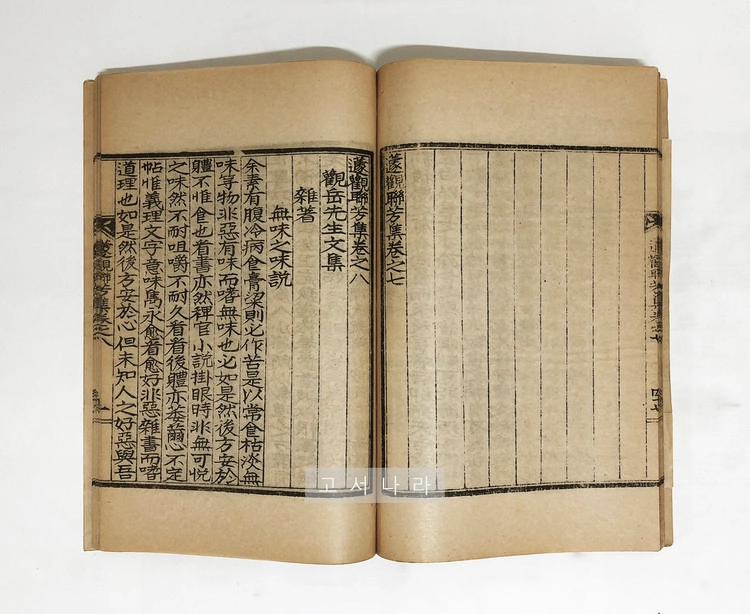 蘧觀聯芳集卷之七
四十七
蘧觀聯芳集卷之七
蘧觀聯芳集卷之八
觀岳先生文集
雜著
無味之味說
余素有腹冷病食膏粱則必作苦是以常食枯淡無
味等物非惡有味而嗜無味也必如是然後方安於
體不惟食也看書亦然稗官小說掛眼時非無可悅
之味然不耐咀嚼不耐久看看後體亦苶薾心不定
帖惟義理文字意味雋永愈看愈好非惡雜書而嗜
道理也如是然後方安於心但未知人之好惡與吾
蘧觀聯芳集卷之八
一
고서나라